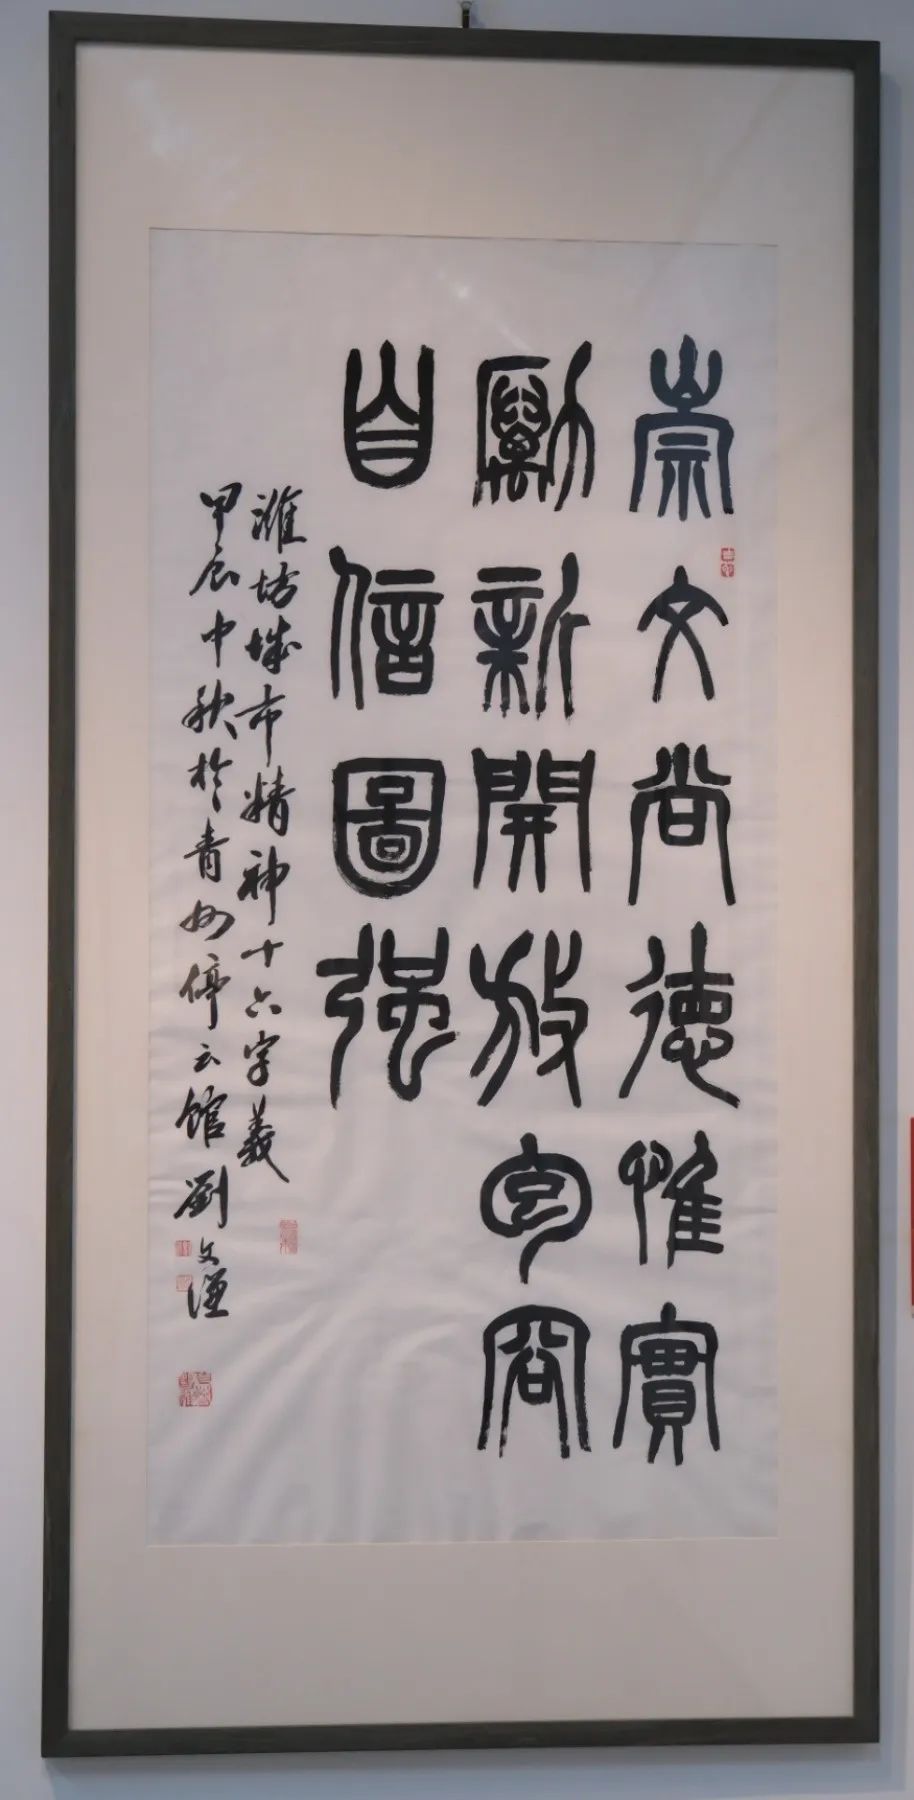 崇文尚德惟實
勵新開放包容
自信圖强
濰坊城市精神十六字義
甲辰中秋於青州停云館劉文謙